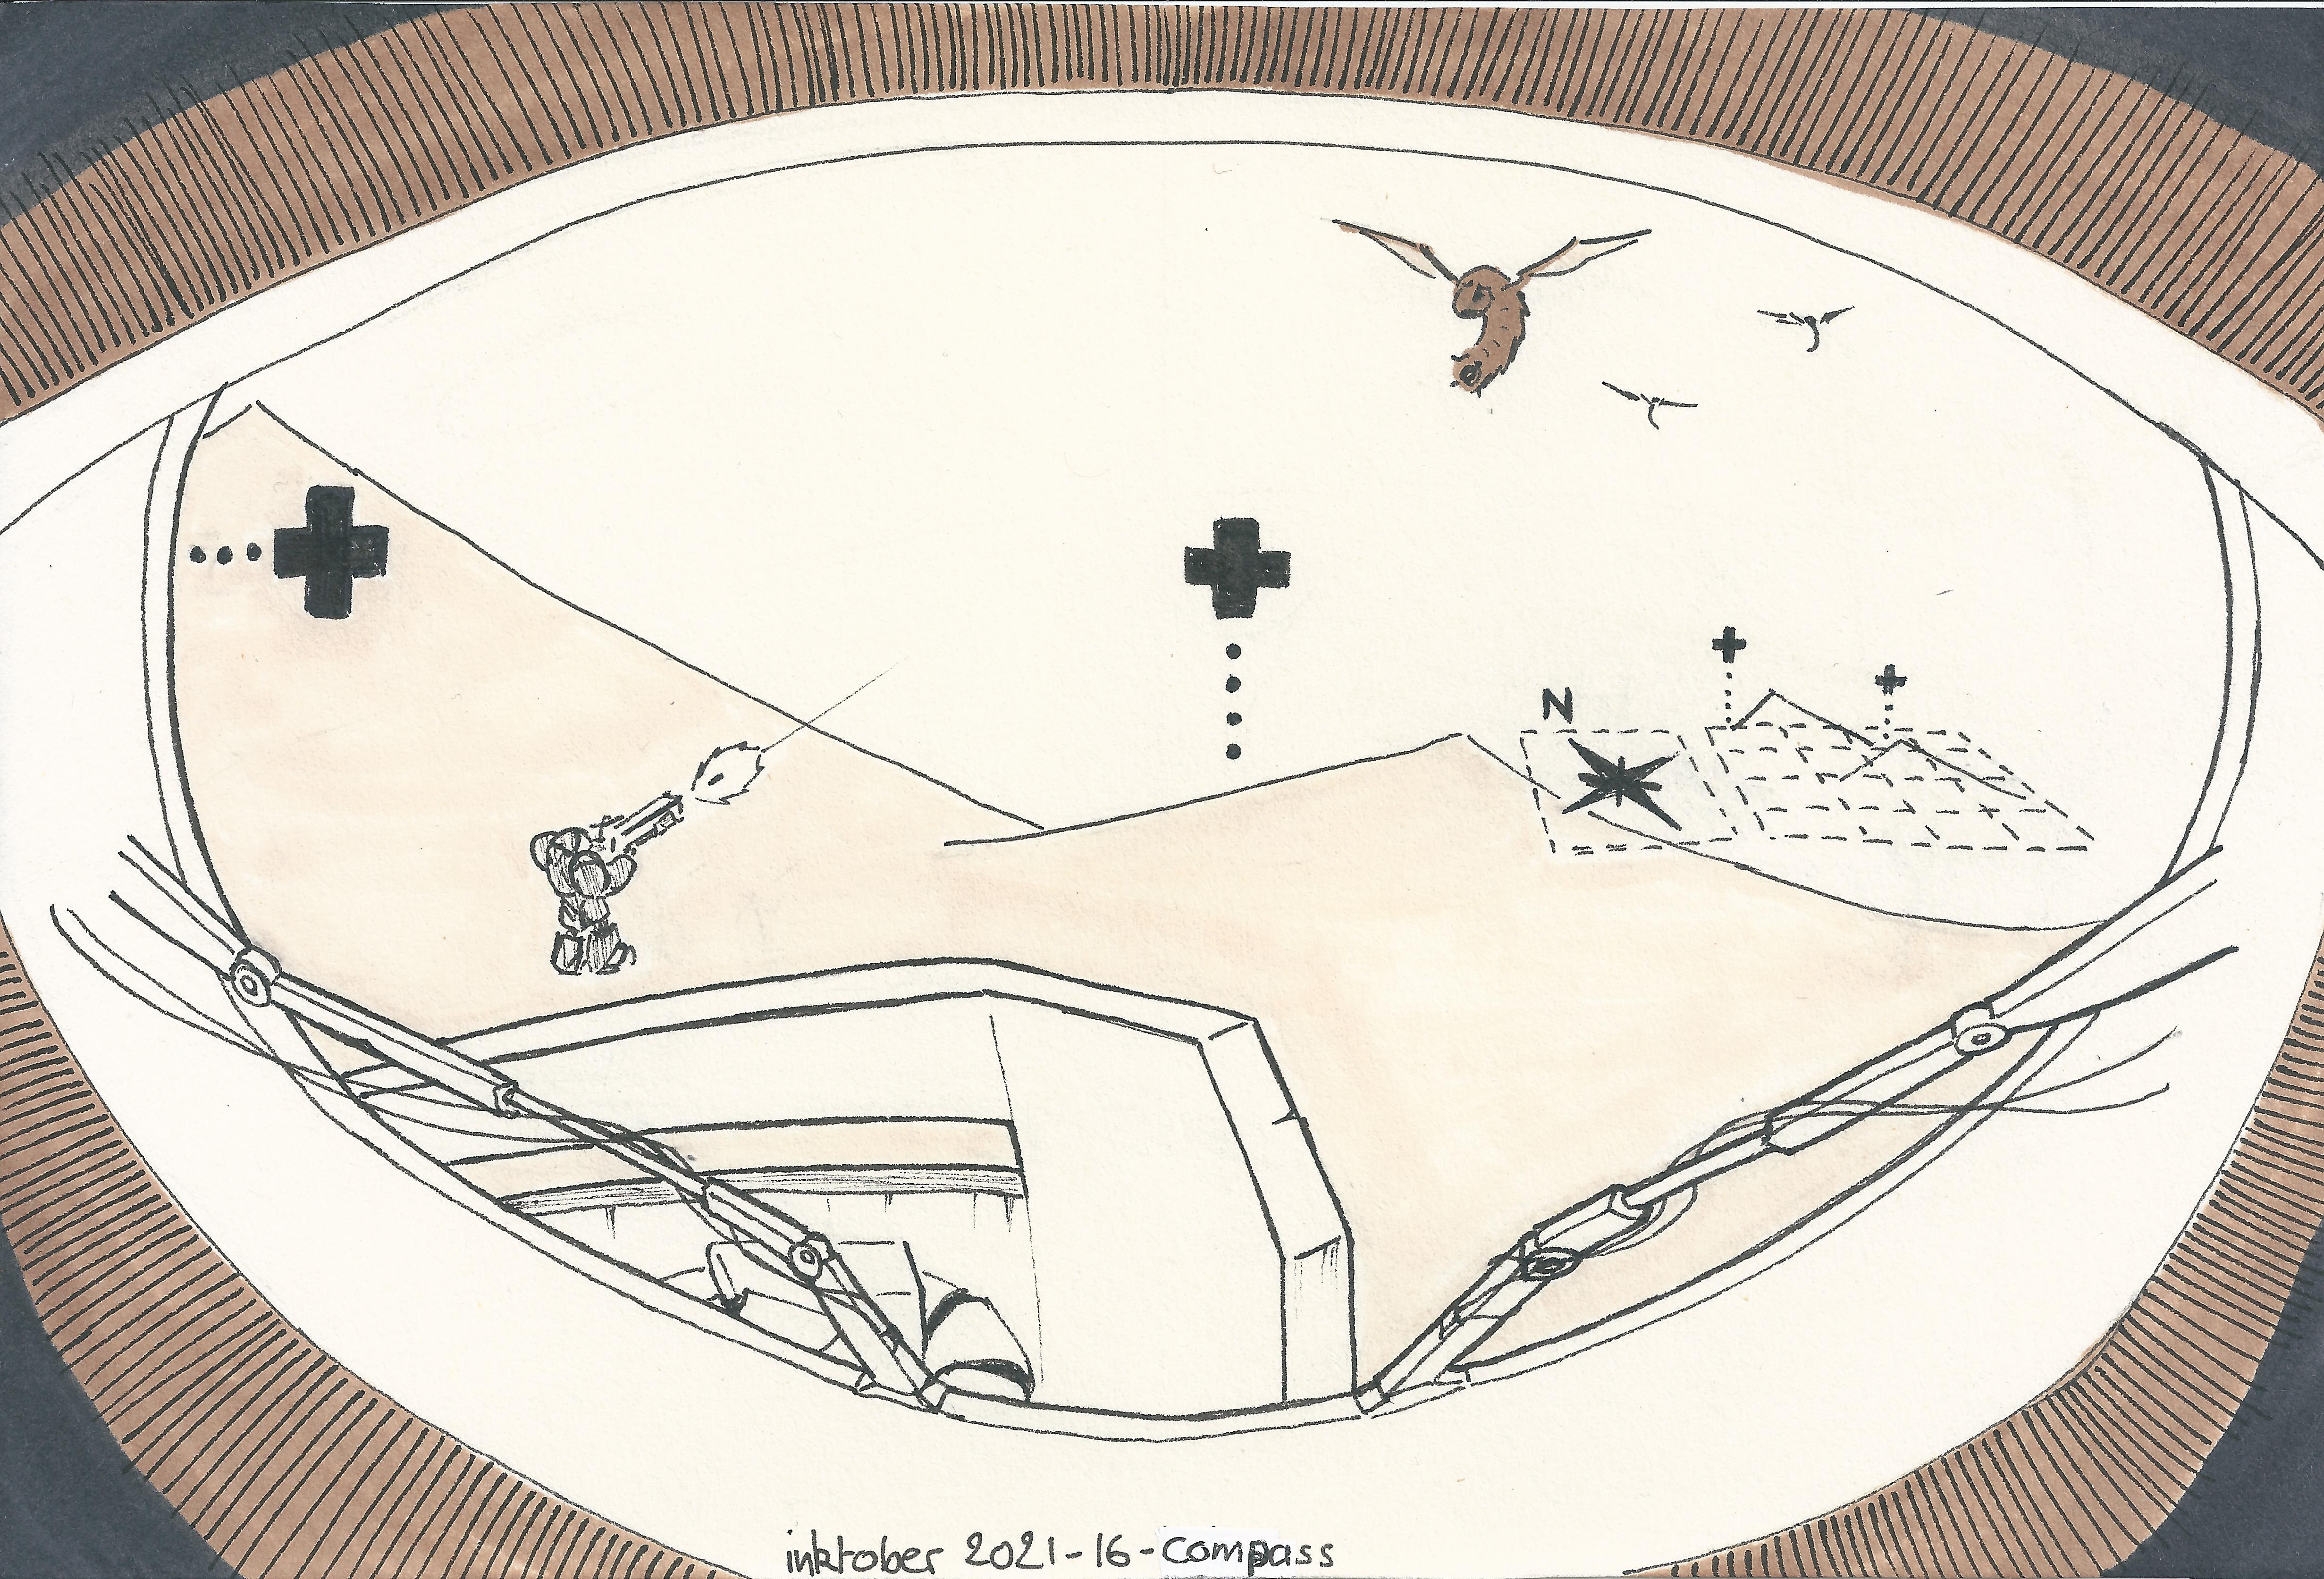 N
inktober 2021-16-compass